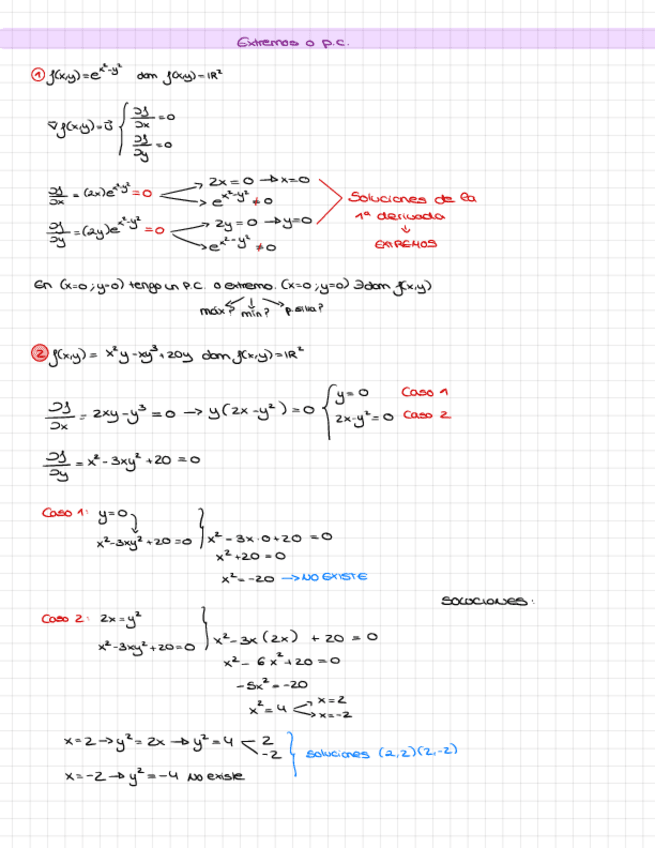 Extremos o p.c.
① f(x,y)=e^{x²-y²} dom f(x,y)=ℝ²
∇f(x,y)=0⃗ { ∂f/∂x =0
∂f/∂y =0
∂f/∂x = (2x)e^{x²-y²} =0 → 2x=0 → x=0
→ e^{x²-y²} ≠0
∂f/∂y =(2y)e^{x²-y²} =0 → 2y=0 → y=0
→ e^{x²-y²} ≠0
Soluciones de la
1ª derivada
↓
EXTREMOS
En (x=0;y=0) tengo un P.C. o extremo. (x=0;y=0) ∃ dom f(x,y)
máx? mín? p.silla?
② f(x,y)= x²y-xy³+20y dom f(x,y)=ℝ²
∂f/∂x = 2xy-y³=0 → y(2x-y²)=0 { y=0 Caso 1
2x-y²=0 Caso 2
∂f/∂y = x²-3xy²+20=0
Caso 1: y=0
x²-3xy²+20=0 } x²-3x·0+20=0
x²+20=0
x²=-20 → NO EXISTE
SOLUCIONES:
Caso 2: 2x=y²
x²-3xy²+20=0 } x²-3x(2x)+20=0
x²-6x²+20=0
-5x²=-20
x²=4 → x=2
→ x=-2
x=2 → y²=2x → y²=4 < 2
-2 } soluciones (2,2)(2,-2)
x=-2 → y²=-4 No existe